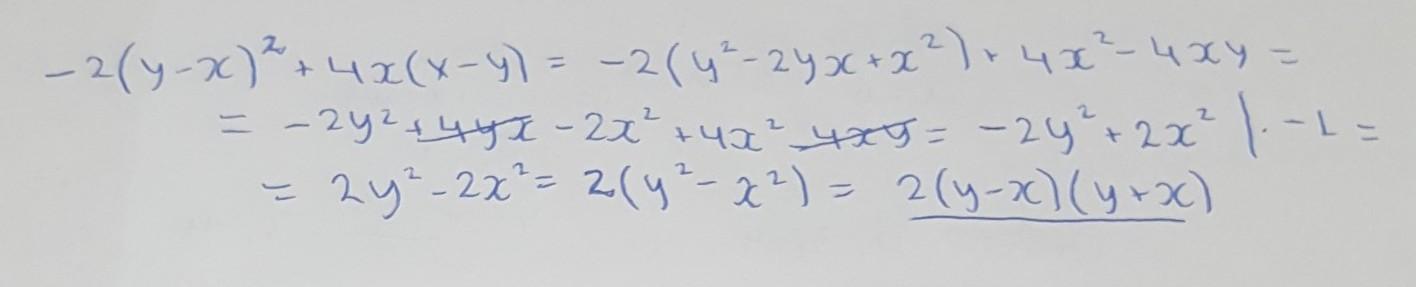 -2(y-x)²+4x(x-y) = -2(y²-2yx+x²)+4x²-4xy =
= -2y²+4yx-2x²+4x²-4xy = -2y²+2x² |·-1 =
= 2y²-2x² = 2(y²-x²) = 2(y-x)(y+x)